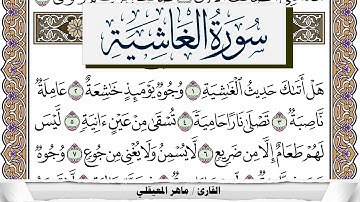 سورة الغاشية
هَلْ أَتَىٰكَ حَدِيثُ ٱلْغَٰشِيَةِ ١ وُجُوهٌ يَوْمَئِذٍ خَٰشِعَةٌ ٢ عَامِلَةٌ
نَّاصِبَةٌ ٣ تَصْلَىٰ نَارًا حَامِيَةً ٤ تُسْقَىٰ مِنْ عَيْنٍ ءَانِيَةٍ ٥ لَّيْسَ
لَهُمْ طَعَامٌ إِلَّا مِن ضَرِيعٍ ٦ لَّا يُسْمِنُ وَلَا يُغْنِى مِن جُوعٍ ٧ وُجُوهٌ
القارئ / ماهر المعيقلي